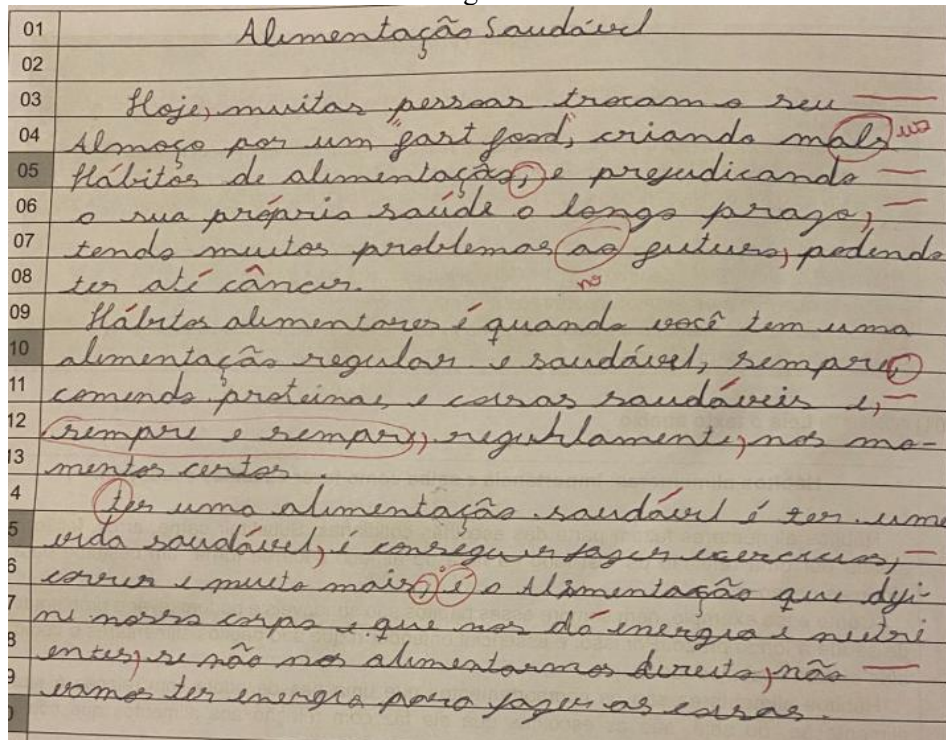 01 Alimentação Saudável
02
03 Hoje, muitas pessoas trocam o seu
04 Almoço por um "fast food", criando mals us
05 Hábitos de alimentação, e prejudicando
06 a sua própria saúde a longo prazo,
07 tendo muitos problemas ao futuro, podendo
no
08 ter até câncer.
09 Hábitos alimentares é quando você tem uma
10 alimentação regular e saudável, sempre,
11 comendo proteínas, e coisas saudáveis e,
12 sempre e sempre, regurlamente, nos mo-
13 mentos certos.
4 ter uma alimentação saudável é ter uma
5 vida saudável, é conseguir fazer exercícios,
6 correr e muito mais, é a Alimentação que defi-
7 ni nosso corpo e que nos dá energia e nutri
8 entes, se não nos alimentarmos direito, não
9 vamos ter energia para fazer as coisas.